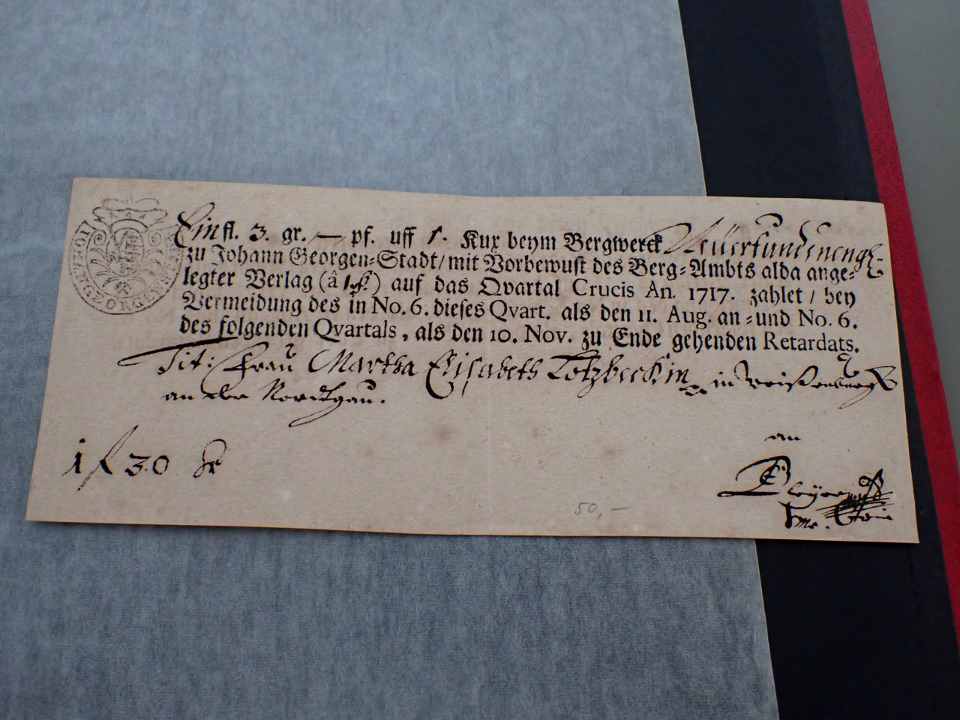 Ein fl. 3. gr. — pf. uff 1. Kux beym Bergwerck
zu Johann Georgen-Stadt / mit Vorbewust des Berg-Ambts alda ange-
legter Verlag (â 1 fl.) auf das Qvartal Crucis An. 1717. zahlet / bey
Vermeidung des in No. 6. dieses Qvart. als den 11. Aug. an- und No. 6.
des folgenden Qvartals, als den 10. Nov. zu Ende gehenden Retardats.
Tit: Frau Martha Elisabeth Lotzbeckin in Weißenburg
an der Nordgau.
1 f 30
an
50,-